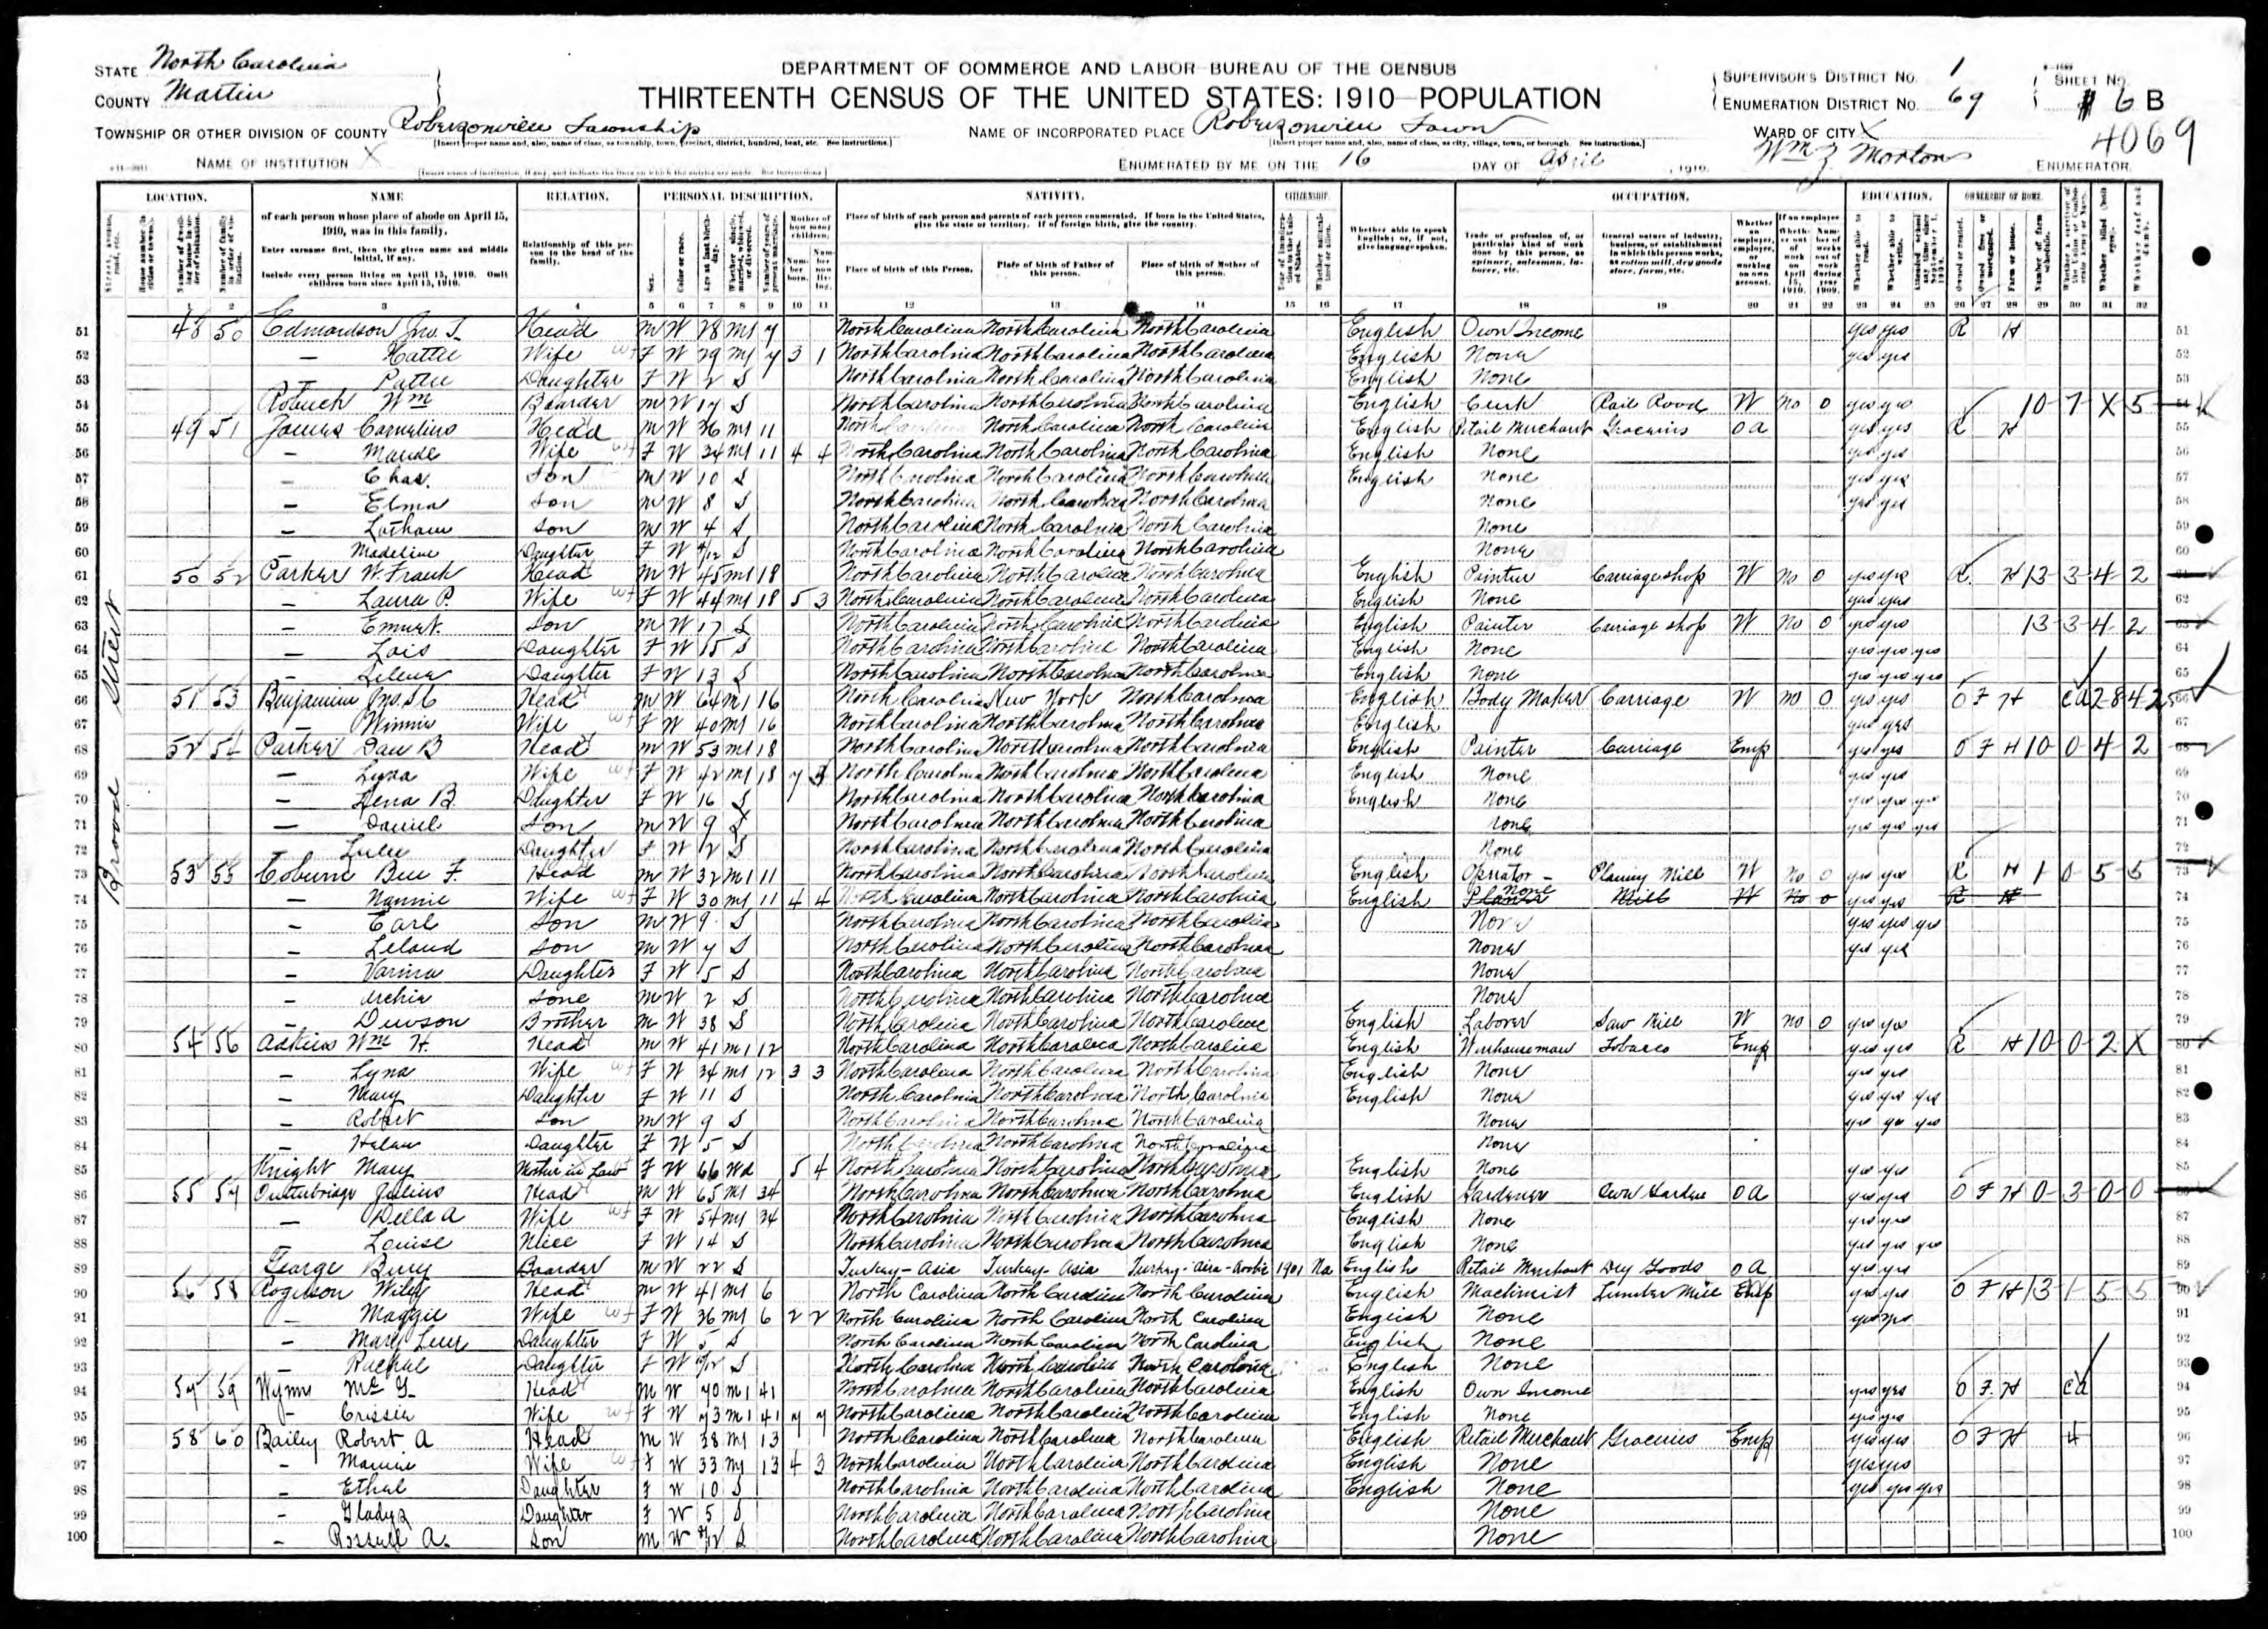 STATE North Carolina
COUNTY Martin
DEPARTMENT OF COMMERCE AND LABOR—BUREAU OF THE CENSUS
THIRTEENTH CENSUS OF THE UNITED STATES: 1910—POPULATION
SUPERVISOR'S DISTRICT No. 1
ENUMERATION DISTRICT No. 69
SHEET No. 6 B
4069
TOWNSHIP OR OTHER DIVISION OF COUNTY Robersonville Township
NAME OF INCORPORATED PLACE Robersonville Town
WARD OF CITY X
NAME OF INSTITUTION X
ENUMERATED BY ME ON THE 16 DAY OF April, 1910.
Wm Z Morton ENUMERATOR.
LOCATION. NAME RELATION. PERSONAL DESCRIPTION. NATIVITY. CITIZENSHIP. OCCUPATION. EDUCATION. OWNERSHIP OF HOME.
of each person whose place of abode on April 15, 1910, was in this family.
Enter surname first, then the given name and middle initial, if any.
Include every person living on April 15, 1910. Omit children born since April 15, 1910.
Relationship of this person to the head of the family.
Place of birth of each person and parents of each person enumerated. If born in the United States, give the state or territory. If of foreign birth, give the country.
Place of birth of this Person. Place of birth of Father of this person. Place of birth of Mother of this person.
Whether able to speak English; or, if not, give language spoken.
Trade or profession of, or particular kind of work done by this person, as spinner, salesman, laborer, etc.
General nature of industry, business, or establishment in which this person works, as cotton mill, dry goods store, farm, etc.
1 2 3 4 5 6 7 8 9 10 11 12 13 14 15 16 17 18 19 20 21 22 23 24 25 26 27 28 29 30 31 32
Broad Street
51 48 50 Edmondson Jno. T. Head M W 28 M1 7 North Carolina North Carolina North Carolina English Own Income yes yes R H 51
52 — Hattie Wife F W 29 M1 7 3 1 North Carolina North Carolina North Carolina English None yes yes 52
53 — Pattie Daughter F W 2 S North Carolina North Carolina North Carolina English None 53
54 Robuck Wm Boarder M W 17 S North Carolina North Carolina North Carolina English Clerk Rail Road W No 0 yes yes 10-7-X-5 54
55 49 51 James Cornelius Head M W 36 M1 11 North Carolina North Carolina North Carolina English Retail Merchant Groceries OA yes yes R H 55
56 — Maude Wife F W 34 M1 11 4 4 North Carolina North Carolina North Carolina English None yes yes 56
57 — Chas. Son M W 10 S North Carolina North Carolina North Carolina English None yes yes 57
58 — Elma Son M W 8 S North Carolina North Carolina North Carolina None yes yes 58
59 — Latham Son M W 4 S North Carolina North Carolina North Carolina None 59
60 — Madeline Daughter F W /12 S North Carolina North Carolina North Carolina None 60
61 50 52 Parker W. Frank Head M W 45 M1 18 North Carolina North Carolina North Carolina English Painter Carriage shop W No 0 yes yes R H 13-3-4-2 61
62 — Laura P. Wife F W 44 M1 18 5 3 North Carolina North Carolina North Carolina English None yes yes 62
63 — Son M W 17 S North Carolina North Carolina North Carolina English Painter Carriage shop W No 0 yes yes 13-3-4-2 63
64 — Lois Daughter F W 15 S North Carolina North Carolina North Carolina English None yes yes yes 64
65 — Daughter F W 13 S North Carolina North Carolina North Carolina English None yes yes yes 65
66 51 53 Benjamin Head M W 64 M1 16 North Carolina New York North Carolina English Body Maker Carriage W No 0 yes yes O F H CA 2-8-4-2 66
67 — Winnie Wife F W 40 M1 16 North Carolina North Carolina North Carolina English yes yes 67
68 52 54 Parker Dan B Head M W 53 M1 18 North Carolina North Carolina North Carolina English Painter Carriage Emp yes yes O F H 10-0-4-2 68
69 — Lyda Wife F W 42 M1 18 7 3 North Carolina North Carolina North Carolina English None yes yes 69
70 — Lena B. Daughter F W 16 S North Carolina North Carolina North Carolina English None yes yes yes 70
71 — Daniel Son M W 9 S North Carolina North Carolina North Carolina None yes yes yes 71
72 — Daughter F W 2 S North Carolina North Carolina North Carolina None 72
73 53 55 Coburn Ben F. Head M W 32 M1 11 North Carolina North Carolina North Carolina English Operator - Planing Mill W No 0 yes yes R H 1-0-5-5 73
74 — Nannie Wife F W 30 M1 11 4 4 North Carolina North Carolina North Carolina English None Mill W No 0 yes yes R H 74
75 — Earl Son M W 9 S North Carolina North Carolina North Carolina None yes yes yes 75
76 — Leland Son M W 7 S North Carolina North Carolina North Carolina None yes yes 76
77 — Varina Daughter F W 5 S North Carolina North Carolina North Carolina None 77
78 — Archie Sone M W 2 S North Carolina North Carolina North Carolina None 78
79 — Dawson Brother M W 38 S North Carolina North Carolina North Carolina English Laborer Saw Mill W No 0 yes yes 79
80 54 56 Adkins Wm H. Head M W 41 M1 12 North Carolina North Carolina North Carolina English Warehouseman Tobacco Emp yes yes R H 10-0-2-X 80
81 — Lyda Wife F W 34 M1 12 3 3 North Carolina North Carolina North Carolina English None yes yes 81
82 — Mary Daughter F W 11 S North Carolina North Carolina North Carolina English None yes yes yes 82
83 — Robert Son M W 9 S North Carolina North Carolina North Carolina None yes yes yes 83
84 — Helen Daughter F W 5 S North Carolina North Carolina North Carolina None 84
85 Knight Mary Mother in Law F W 66 Wd 5 4 North Carolina North Carolina North Carolina English None yes yes 85
86 55 57 Outterbridge Julius Head M W 65 M1 34 North Carolina North Carolina North Carolina English Gardener Own Garden OA yes yes O F H 0-3-0-0 86
87 — Della A Wife F W 54 M1 34 North Carolina North Carolina North Carolina English None yes yes 87
88 — Louise Niece F W 14 S North Carolina North Carolina North Carolina English None yes yes yes 88
89 George Boarder M W 22 S Turkey - Asia Turkey - Asia Turkey - Asia - 1901 Na English Retail Merchant Dry Goods OA yes yes 89
90 56 58 Rogerson Wiley Head M W 41 M1 6 North Carolina North Carolina North Carolina English Machinist Lumber Mill Emp yes yes O F H 13-1-5-5 90
91 — Maggie Wife F W 36 M1 6 2 2 North Carolina North Carolina North Carolina English None yes yes 91
92 — Mary Daughter F W 5 S North Carolina North Carolina North Carolina English None 92
93 — Rachal Daughter F W /12 S North Carolina North Carolina North Carolina English None 93
94 57 59 Wynns Mc G. Head M W 70 M1 41 North Carolina North Carolina North Carolina English Own Income yes yes O F H CA 94
95 — Crissie Wife F W 73 M1 41 7 7 North Carolina North Carolina North Carolina English None yes yes 95
96 58 60 Bailey Robert A Head M W 38 M1 13 North Carolina North Carolina North Carolina English Retail Merchant Groceries Emp yes yes O F H 96
97 — Mamie Wife F W 33 M1 13 4 3 North Carolina North Carolina North Carolina English None yes yes 97
98 — Ethel Daughter F W 10 S North Carolina North Carolina North Carolina English None yes yes yes 98
99 — Gladys Daughter F W 5 S North Carolina North Carolina North Carolina None 99
100 — Russell A. Son M W /12 S North Carolina North Carolina North Carolina None 100